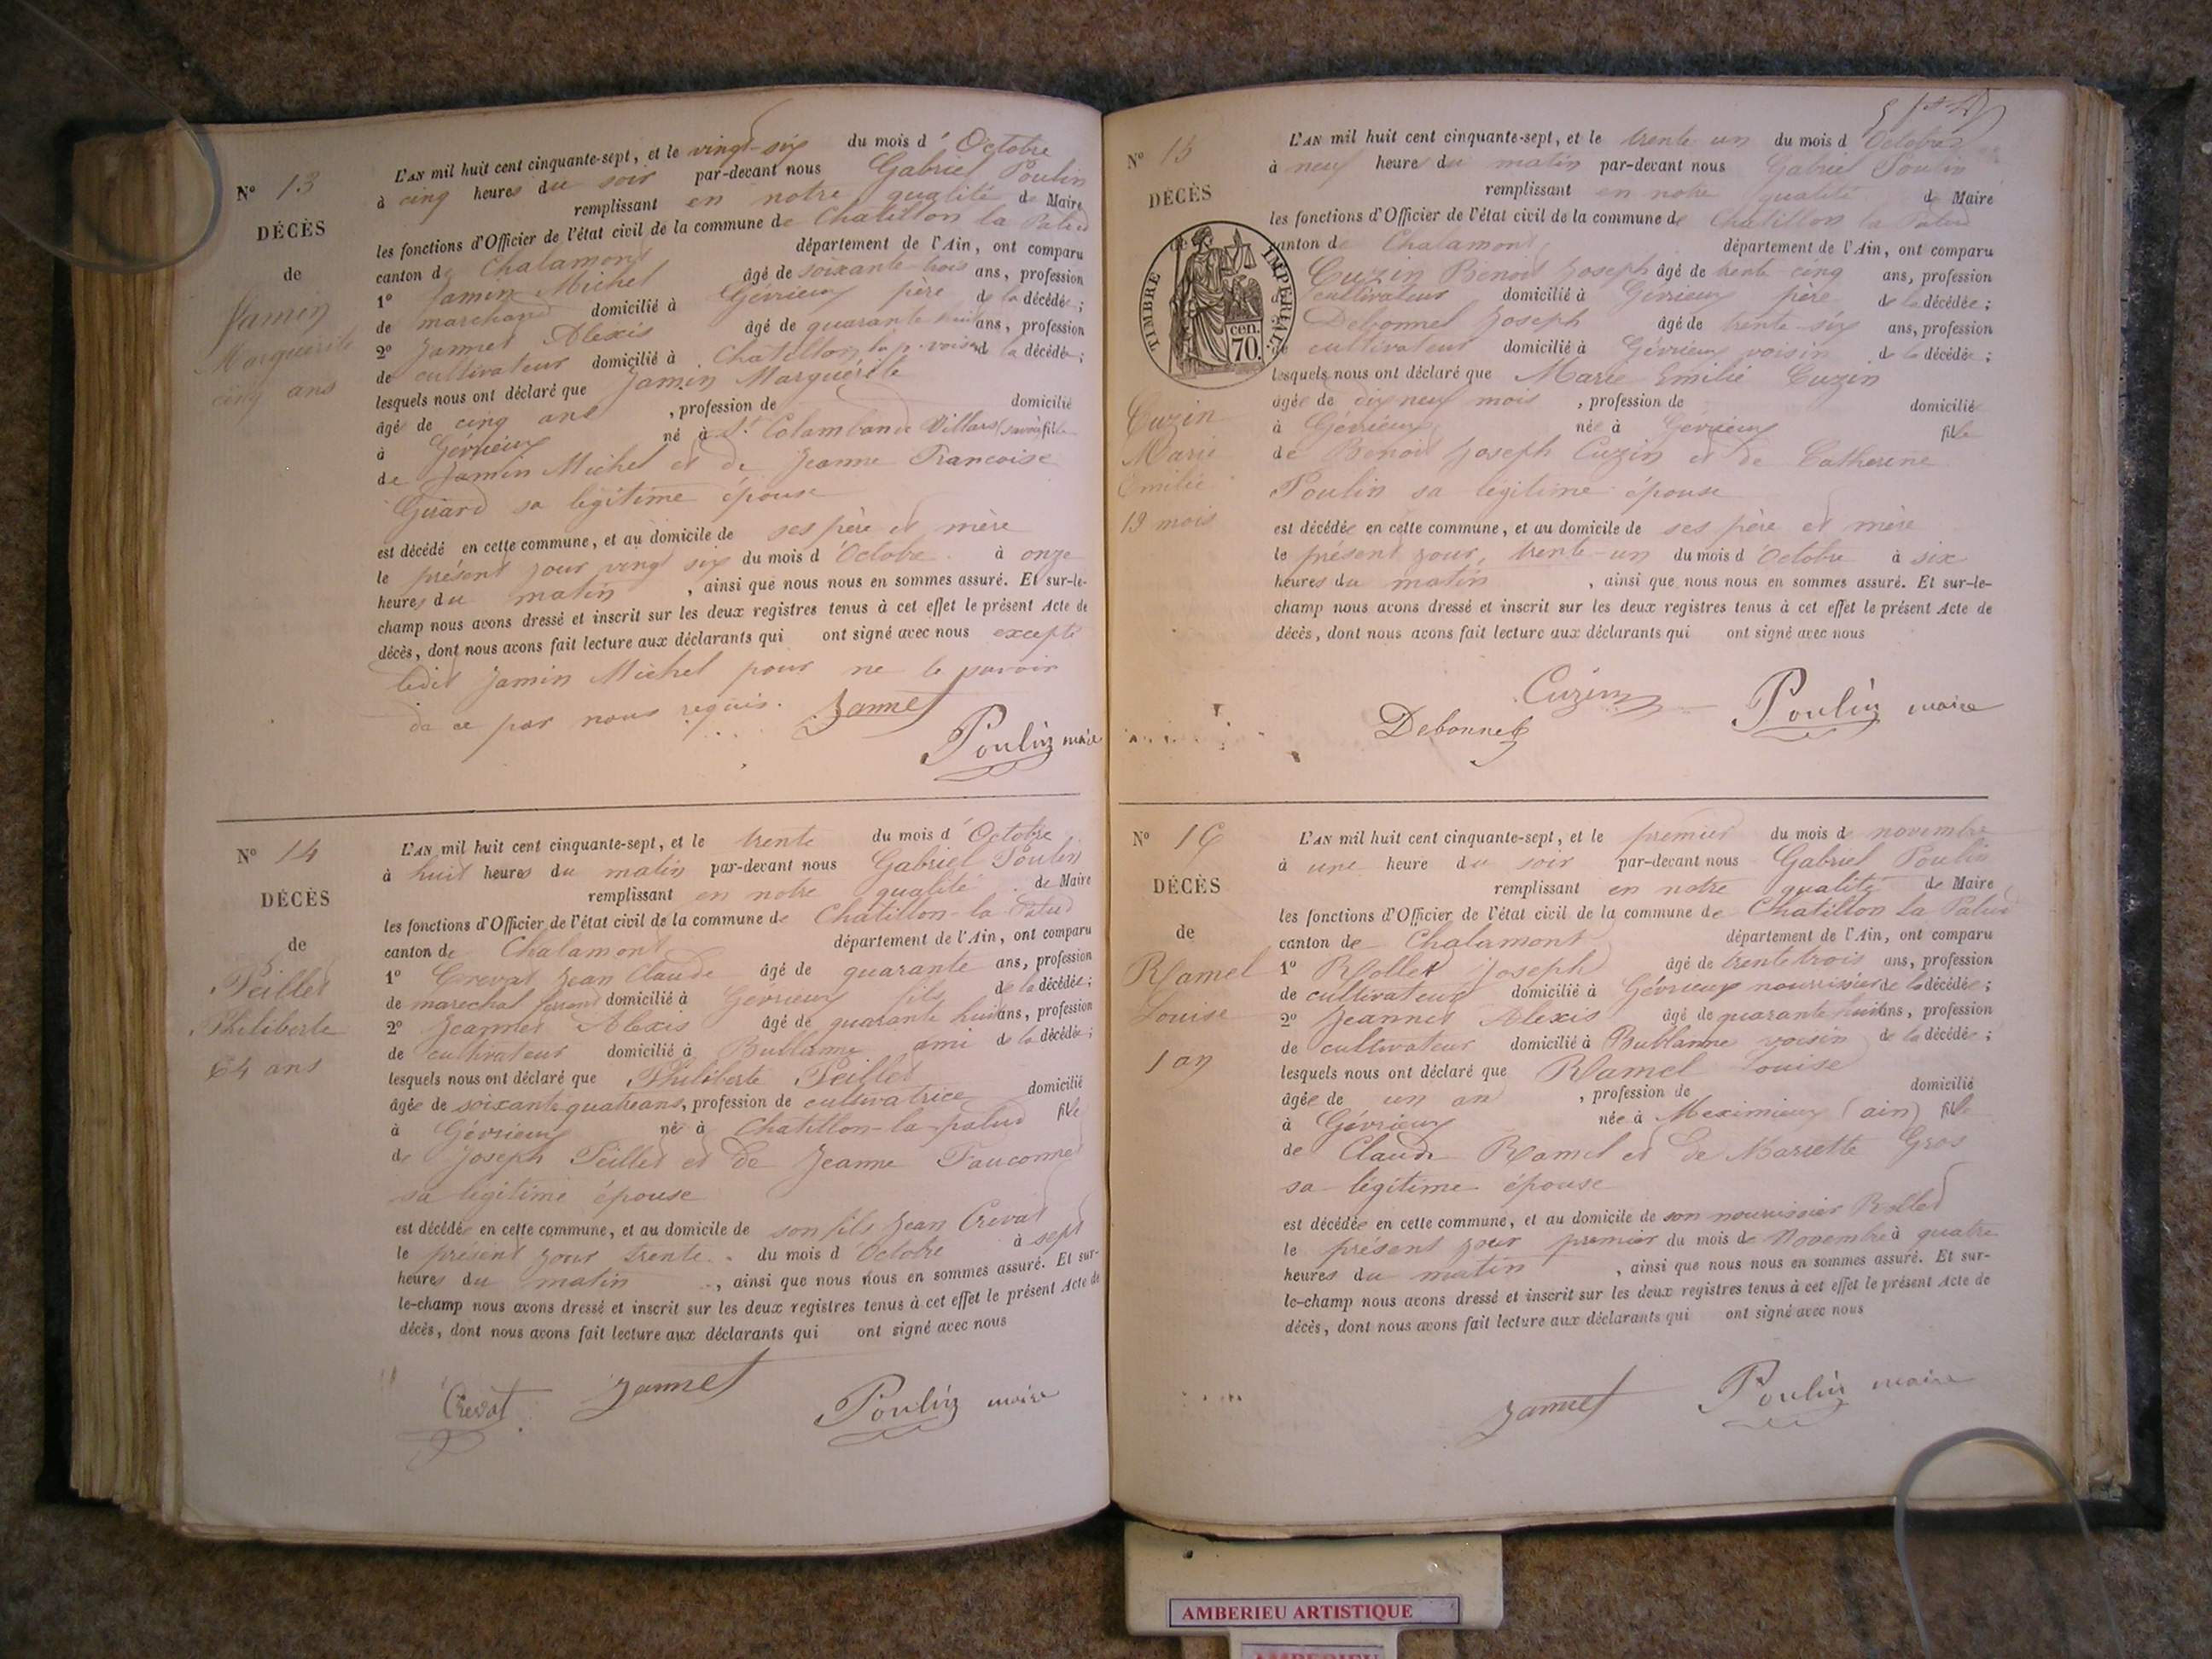 N° 13
DÉCÈS
de
Jamin
Marguerite
cinq ans
L'AN mil huit cent cinquante-sept, et le vingt-six du mois d'Octobre
à cinq heures du soir par-devant nous Gabriel Poulin
remplissant en notre qualité de Maire
les fonctions d'Officier de l'état civil de la commune de Chatillon la Palud
canton de Chalamont département de l'Ain, ont comparu
1° Jamin Michel âgé de soixante-trois ans, profession
de marchand domicilié à Gévrieux père de la décédée ;
2° Jannet Alexis âgé de quarante huit ans, profession
de cultivateur domicilié à Chatillon la p. voisin de la décédée ;
lesquels nous ont déclaré que Jamin Marguerite
âgé de cinq ans , profession de domicilié
à Gévrieux né à St Colamban de Villars (Savoie) fille
de Jamin Michel et de Jeanne Francoise
Girard sa légitime épouse
est décédé en cette commune, et au domicile de ses père et mère
le présent jour vingt six du mois d'Octobre à onze
heures du matin , ainsi que nous nous en sommes assuré. Et sur-le-
champ nous avons dressé et inscrit sur les deux registres tenus à cet effet le présent Acte de
décès, dont nous avons fait lecture aux déclarants qui ont signé avec nous excepté
ledit Jamin Michel pour ne le savoir
de ce par nous requis. Jannet
Poulin maire
N° 14
DÉCÈS
de
Peillet
Philiberte
64 ans
L'AN mil huit cent cinquante-sept, et le trente du mois d'Octobre
à huit heures du matin par-devant nous Gabriel Poulin
remplissant en notre qualité de Maire
les fonctions d'Officier de l'état civil de la commune de Chatillon-la-Palud
canton de Chalamont département de l'Ain, ont comparu
1° Crevat Jean Claude âgé de quarante ans, profession
de marechal ferrand domicilié à Gévrieux fils de la décédée ;
2° Jeannet Alexis âgé de quarante huit ans, profession
de cultivateur domicilié à Bublanne ami de la décédée ;
lesquels nous ont déclaré que Philiberte Peillet
âgée de soixante quatre ans, profession de cultivatrice domicilié
à Gévrieux né à Chatillon-la-palud fille
de Joseph Peillet et de Jeanne Fauconnet
sa légitime épouse
est décédée en cette commune, et au domicile de son fils Jean Crevat
le présent jour trente du mois d Octobre à sept
heures du matin , ainsi que nous nous en sommes assuré. Et sur-
le-champ nous avons dressé et inscrit sur les deux registres tenus à cet effet le présent Acte de
décès, dont nous avons fait lecture aux déclarants qui ont signé avec nous
Crevat Jannet Poulin maire
N° 15
DÉCÈS
de
TIMBRE IMPERIAL
70 cen.
Cuzin
Marie
Emilie
19 mois
L'AN mil huit cent cinquante-sept, et le trente un du mois d Octobre
à neuf heures du matin par-devant nous Gabriel Poulin
remplissant en notre qualité de Maire
les fonctions d'Officier de l'état civil de la commune de Chatillon la Palud
canton de Chalamont département de l'Ain, ont comparu
Cuzin Benoit Joseph âgé de trente cinq ans, profession
cultivateur domicilié à Gévrieux père de la décédée ;
Debonnet Joseph âgé de trente-six ans, profession
de cultivateur domicilié à Gévrieux voisin de la décédée ;
lesquels nous ont déclaré que Marie Emilie Cuzin
âgée de dix neuf mois , profession de domicilié
à Gévrieux née à Gévrieux fille
de Benoit Joseph Cuzin et de Catherine
Poulin sa légitime épouse
est décédée en cette commune, et au domicile de ses père et mère
le présent jour, trente-un du mois d'Octobre à six
heures du matin , ainsi que nous nous en sommes assuré. Et sur-le-
champ nous avons dressé et inscrit sur les deux registres tenus à cet effet le présent Acte de
décès, dont nous avons fait lecture aux déclarants qui ont signé avec nous
Cuzin Poulin maire
Debonnet
N° 16
DÉCÈS
de
Ramel
Louise
1 an
L'AN mil huit cent cinquante-sept, et le premier du mois de novembre
à une heure du soir par-devant nous Gabriel Poulin
remplissant en notre qualité de Maire
les fonctions d'Officier de l'état civil de la commune de Chatillon la Palud
canton de Chalamont département de l'Ain, ont comparu
1° Rollet Joseph âgé de trente trois ans, profession
de cultivateur domicilié à Gévrieux nourrissier de la décédée ;
2° Jeannet Alexis âgé de quarante huit ans, profession
de cultivateur domicilié à Bublanne voisin de la décédée ;
lesquels nous ont déclaré que Ramel Louise
âgée de un an , profession de domicilié
à Gévrieux née à Meximieux (ain) fille
de Claude Ramel et de Mariette Gros
sa légitime épouse
est décédée en cette commune, et au domicile de son nourrissier Rollet
le présent jour premier du mois de Novembre à quatre
heures du matin , ainsi que nous nous en sommes assuré. Et sur-
le-champ nous avons dressé et inscrit sur les deux registres tenus à cet effet le présent Acte de
décès, dont nous avons fait lecture aux déclarants qui ont signé avec nous
Jannet Poulin maire
AMBERIEU ARTISTIQUE
AMBERIEU